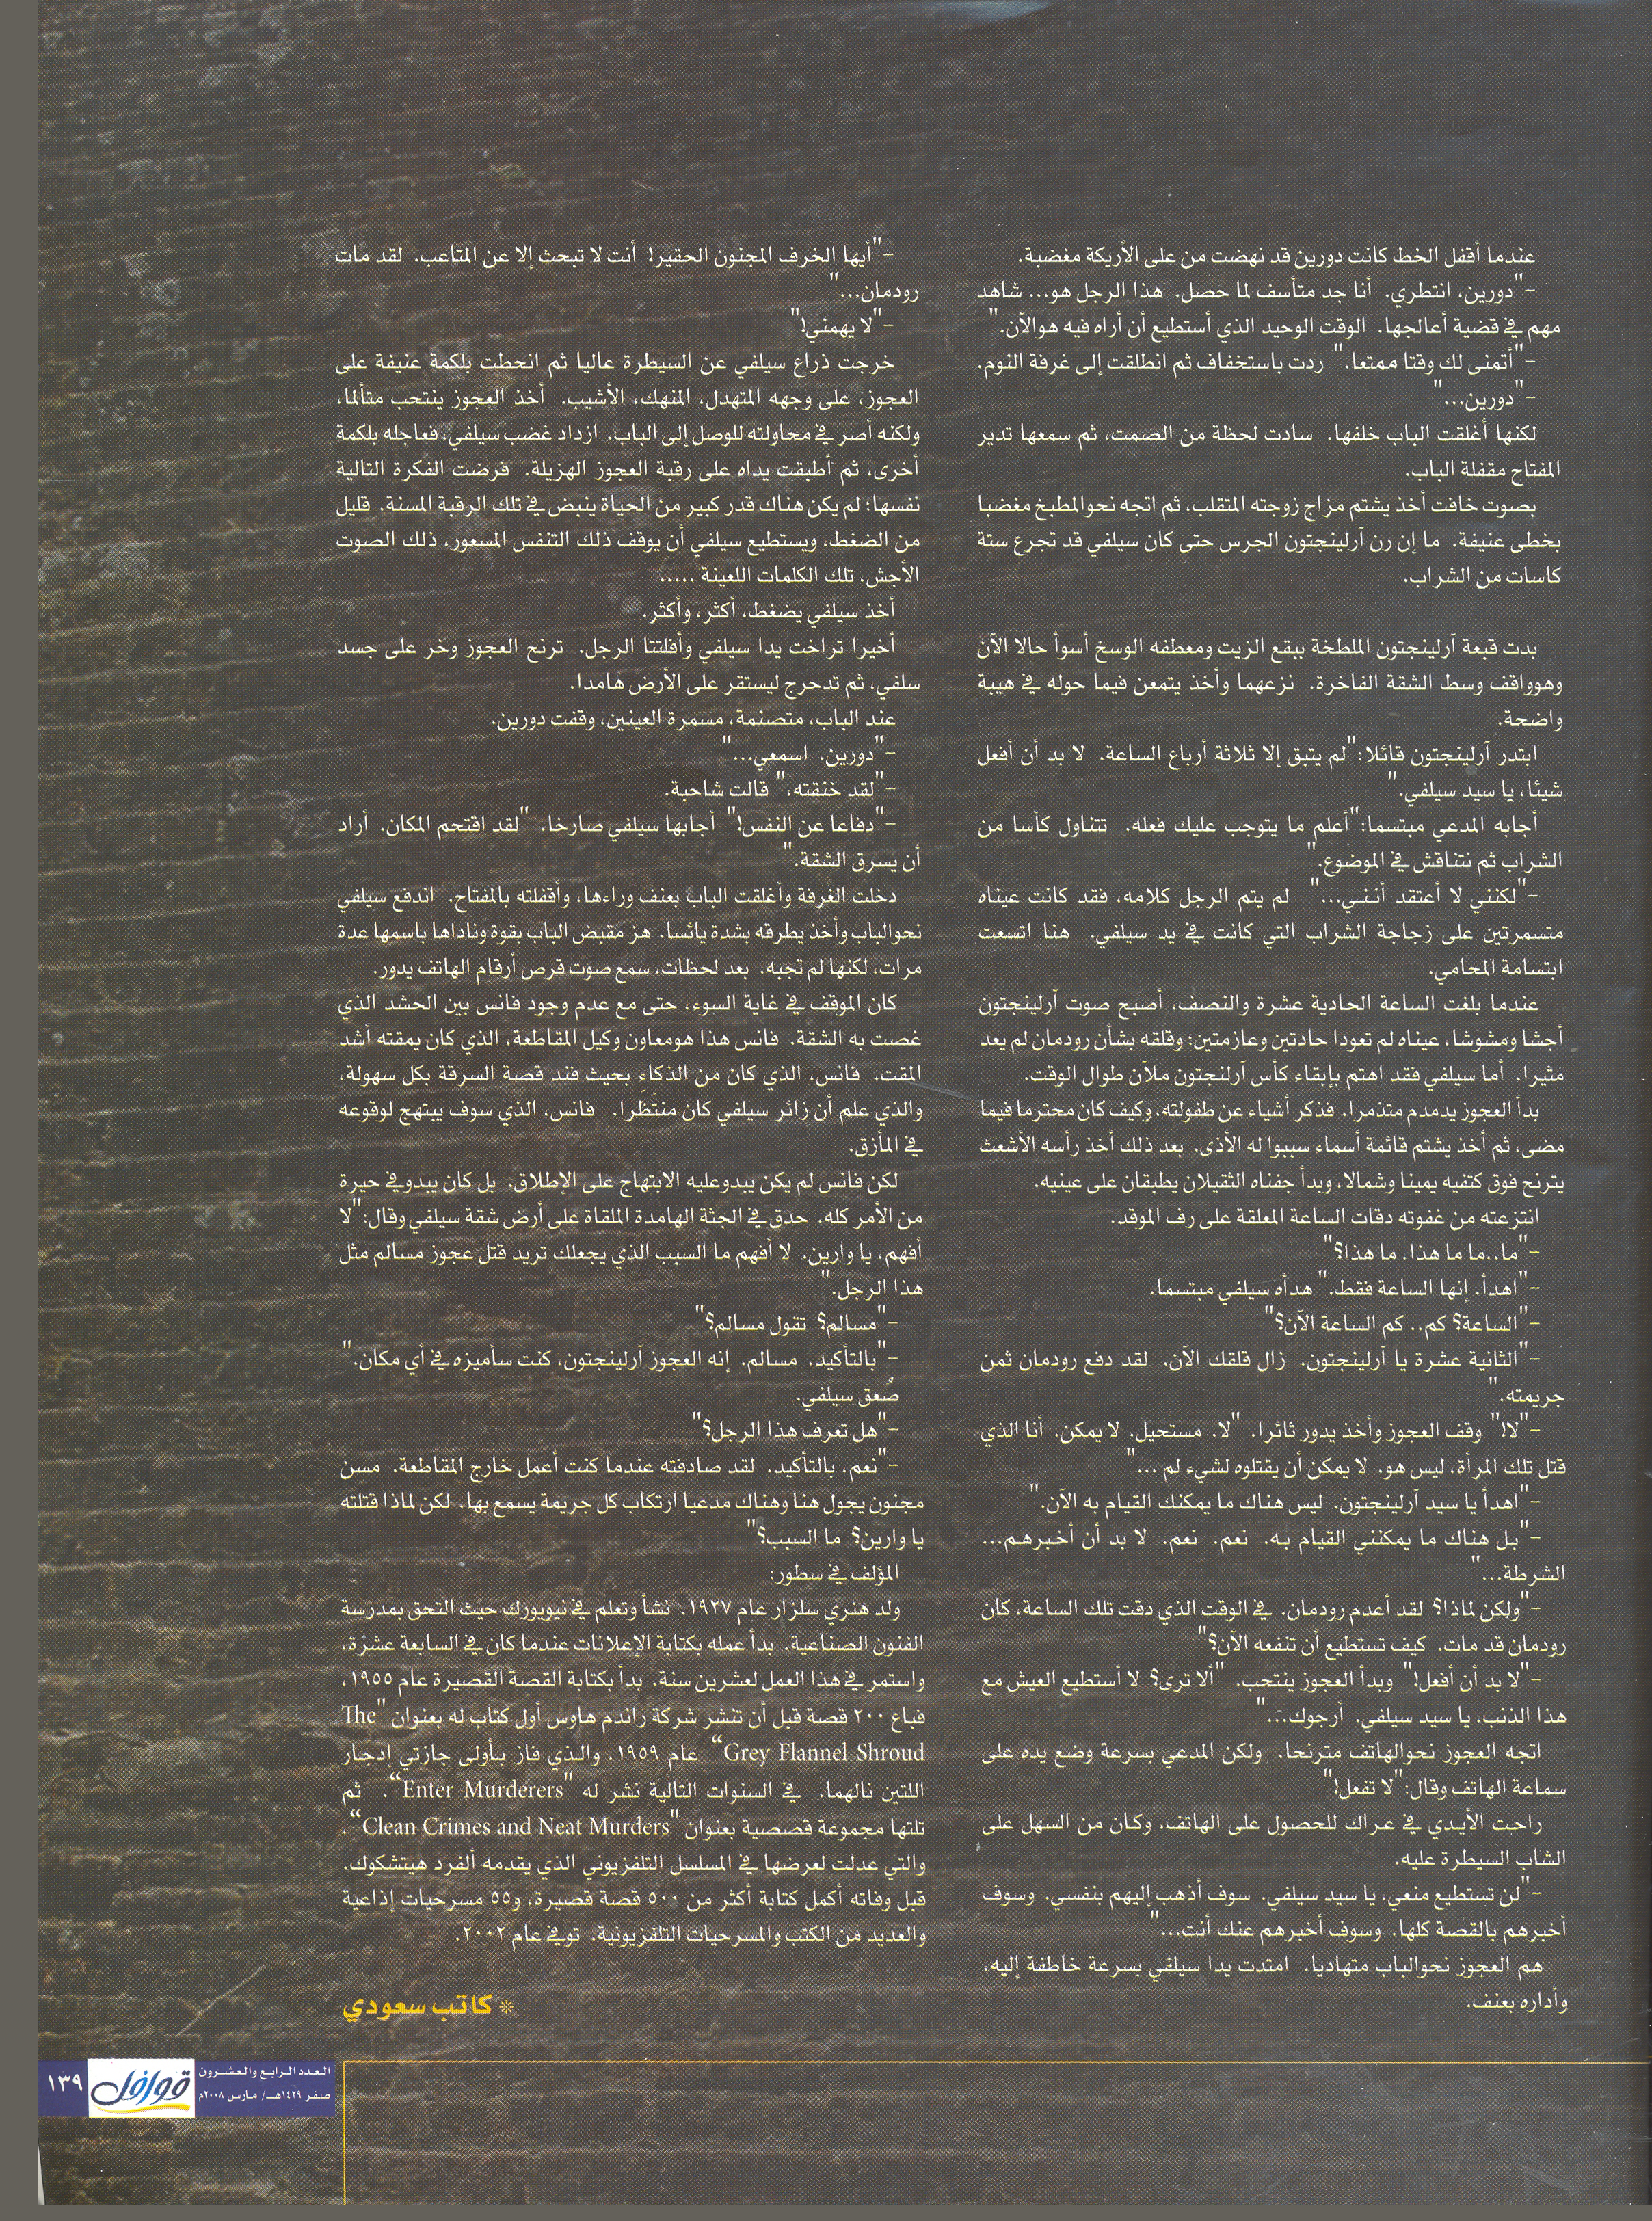 عندما أقفل الخط كانت دورين قد نهضت من على الأريكة مغضبة.
-"دورين، انتطري. أنا جد متأسف لما حصل. هذا الرجل هو... شاهد
مهم في قضية أعالجها. الوقت الوحيد الذي أستطيع أن أراه فيه هوالآن."
-"أتمنى لك وقتا ممتعا." ردت باستخفاف ثم انطلقت إلى غرفة النوم.
-"دورين..."
لكنها أغلقت الباب خلفها. سادت لحظة من الصمت، ثم سمعها تدير
المفتاح مقفلة الباب.
بصوت خافت أخذ يشتم مزاج زوجته المتقلب، ثم اتجه نحوالمطبخ مغضبا
بخطى عنيفة. ما إن رن آرلينجتون الجرس حتى كان سيلفي قد تجرع ستة
كاسات من الشراب.
بدت قبعة آرلينجتون الملطخة ببقع الزيت ومعطفه الوسخ أسوأ حالا الآن
وهوواقف وسط الشقة الفاخرة. نزعهما وأخذ يتمعن فيما حوله في هيبة
واضحة.
ابتدر آرلينجتون قائلا:"لم يتبق إلا ثلاثة أرباع الساعة. لا بد أن أفعل
شيئا، يا سيد سيلفي."
أجابه المدعي مبتسما:"أعلم ما يتوجب عليك فعله. تتناول كأسا من
الشراب ثم نتناقش في الموضوع."
-"لكنني لا أعتقد أنـنـي..." لم يتم الرجل كلامه، فقد كانت عيناه
متسمرتين على زجاجة الشراب التي كانت في يد سيلفي. هنا اتسعت
ابتسامة المحامي.
عندما بلغت الساعة الحادية عشرة والنصف، أصبح صوت آرلينجتون
أجشا ومشوشا، عيناه لم تعودا حادتين وعازمتين؛ وقلقه بشأن رودمان لم يعد
مثيرا. أما سيلفي فقد اهتم بإبقاء كأس آرلنجتون ملآن طوال الوقت.
بدأ العجوز يدمدم متذمرا. فذكر أشياء عن طفولته، وكيف كان محترما فيما
مضى، ثم أخذ يشتم قائمة أسماء سببوا له الأذى. بعد ذلك أخذ رأسه الأشعث
يترنح فوق كتفيه يمينا وشمالا، وبدأ جفناه الثقيلان يطبقان على عينيه.
انتزعته من غفوته دقات الساعة المعلقة على رف الموقد.
-"ما..ما ما هذا، ما هذا؟"
-"اهدأ. إنها الساعة فقط." هدأه سيلفي مبتسما.
-"الساعة؟ كم.. كم الساعة الآن؟"
-"الثانية عشرة يا آرلينجتون. زال قلقك الآن. لقد دفع رودمان ثمن
جريمته."
-"لا!" وقف العجوز وأخذ يدور ثائرا. "لا. مستحيل. لا يمكن. أنا الذي
قتل تلك المرأة، ليس هو. لا يمكن أن يقتلوه لشيء لم ..."
-"اهدأ يا سيد آرلينجتون. ليس هناك ما يمكنك القيام به الآن."
-"بل هناك ما يمكنني القيام به. نعم. نعم. لا بد أن أخبرهم...
الشرطة..."
-"ولكن لماذا؟ لقد أعدم رودمان. في الوقت الذي دقت تلك الساعة، كان
رودمان قد مات. كيف تستطيع أن تنفعه الآن؟"
-"لا بد أن أفعل!" وبدأ العجوز ينتحب. "ألا ترى؟ لا أستطيع العيش مع
هذا الذنب، يا سيد سيلفي. أرجوك..."
اتجه العجوز نحوالهاتف مترنحا. ولكن المدعي بسرعة وضع يده على
سماعة الهاتف وقال:"لا تفعل!"
راحت الأيدي في عراك للحصول على الهاتف، وكان من السهل على
الشاب السيطرة عليه.
-"لن تستطيع منعي، يا سيد سيلفي. سوف أذهب إليهم بنفسي. وسوف
أخبرهم بالقصة كلها. وسوف أخبرهم عنك أنت..."
هم العجوز نحوالباب متهاديا. امتدت يدا سيلفي بسرعة خاطفة إليه،
وأداره بعنف.
-"أيها الخرف المجنون الحقير! أنت لا تبحث إلا عن المتاعب. لقد مات
رودمان..."
-"لا يهمني!"
خرجت ذراع سيلفي عن السيطرة عاليا ثم انحطت بلكمة عنيفة على
العجوز، على وجهه المتهدل، المنهك، الأشيب. أخذ العجوز ينتحب متألما،
ولكنه أصر في محاولته للوصل إلى الباب. ازداد غضب سيلفي، فعاجله بلكمة
أخرى، ثم أطبقت يداه على رقبة العجوز الهزيلة. فرضت الفكرة التالية
نفسها؛ لم يكن هناك قدر كبير من الحياة ينبض في تلك الرقبة المسنة. قليل
من الضغط، ويستطيع سيلفي أن يوقف ذلك التنفس المسعور، ذلك الصوت
الأجش، تلك الكلمات اللعينة .....
أخذ سيلفي يضغط، أكثر، وأكثر.
أخيرا تراخت يدا سيلفي وأفلتتا الرجل. ترنح العجوز وخر على جسد
سلفي، ثم تدحرج ليستقر على الأرض هامدا.
عند الباب، متصنمة، مسمرة العينين، وقفت دورين.
-"دورين. اسمعي..."
-"لقد خنقته،" قالت شاحبة.
-"دفاعا عن النفس!" أجابها سيلفي صارخا. "لقد اقتحم المكان. أراد
أن يسرق الشقة."
دخلت الغرفة وأغلقت الباب بعنف وراءها، وأقفلته بالمفتاح. اندفع سيلفي
نحوالباب وأخذ يطرقه بشدة يائسا. هز مقبض الباب بقوة وناداها باسمها عدة
مرات، لكنها لم تجبه. بعد لحظات، سمع صوت قرص أرقام الهاتف يدور.
كان الموقف في غاية السوء، حتى مع عدم وجود فانس بين الحشد الذي
غصت به الشقة. فانس هذا هومعاون وكيل المقاطعة، الذي كان يمقته أشد
المقت. فانس، الذي كان من الذكاء بحيث فند قصة السرقة بكل سهولة،
والذي علم أن زائر سيلفي كان منتَظرا. فانس، الذي سوف يبتهج لوقوعه
في المأزق.
لكن فانس لم يكن يبدوعليه الابتهاج على الإطلاق. بل كان يبدوفي حيرة
من الأمر كله. حدق في الجثة الهامدة الملقاة على أرض شقة سيلفي وقال:"لا
أفهم، يا وارين. لا أفهم ما السبب الذي يجعلك تريد قتل عجوز مسالم مثل
هذا الرجل."
-"مسالم؟ تقول مسالم؟"
-"بالتأكيد. مسالم. إنه العجوز آرلينجتون، كنت سأميزه في أي مكان."
صُعق سيلفي.
-"هل تعرف هذا الرجل؟"
-"نعم، بالتأكيد. لقد صادفته عندما كنت أعمل خارج المقاطعة. مسن
مجنون يجول هنا وهناك مدعيا ارتكاب كل جريمة يسمع بها. لكن لماذا قتلته
يا وارين؟ ما السبب؟"
المؤلف في سطور:
ولد هنري سلزار عام ١٩٢٧. نشأ وتعلم في نيويورك حيث التحق بمدرسة
الفنون الصناعية. بدأ عمله بكتابة الإعلانات عندما كان في السابعة عشرة،
واستمر في هذا العمل لعشرين سنة. بدأ بكتابة القصة القصيرة عام ١٩٥٥،
فباع ٢٠٠ قصة قبل أن تنشر شركة راندم هاوس أول كتاب له بعنوان "The
Grey Flannel Shroud" عام ١٩٥٩، والذي فاز بأولى جازتي إدجار
اللتين نالهما. في السنوات التالية نشر له "Enter Murderers". ثم
تلتها مجموعة قصصية بعنوان "Clean Crimes and Neat Murders"،
والتي عدلت لعرضها في المسلسل التلفزيوني الذي يقدمه ألفرد هيتشكوك.
قبل وفاته أكمل كتابة أكثر من ٥٠٠ قصة قصيرة، و٥٥ مسرحيات إذاعية
والعديد من الكتب والمسرحيات التلفزيونية. توفي عام ٢٠٠٢.
* كاتب سعودي
العدد الرابع والعشرون
صفر ١٤٢٩هـ/ مارس ٢٠٠٨م
قوافل
١٣٩